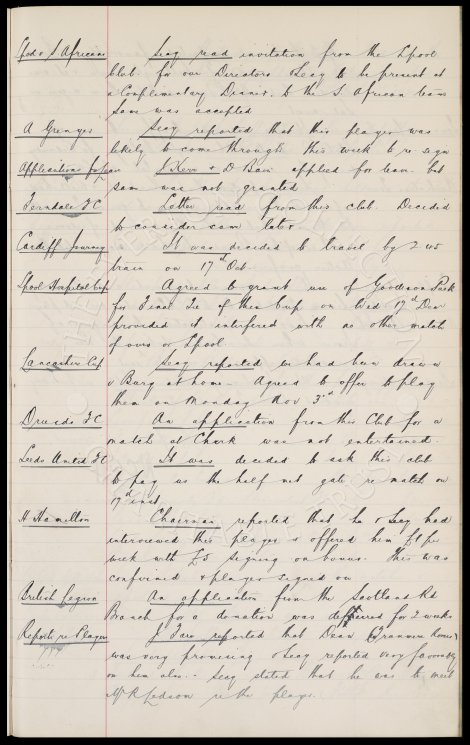 Lpool & S Africans Secy read invitation from the Lpool
Club. for our Directors & Secy to be present at
a Complimentary Dinner. to the S African team
Same was accepted
A Grenyer Secy reported that this player was
likely to come through this week to re-sign
Applications for leave J Kerr & D Bain applied for leave but
same was not granted
Ferndale FC Letter read from this club. Decided
to consider same later
Cardiff Journey It was decided to travel by 2.45
train on 17th Oct.
Lpool Hospital Cup Agreed to grant use of Goodison Park
for Final Tie of this Cup on Wed 17th Decr
provided it interfered with no other match
of ours or Lpool.
Lancashire Cup Secy reported we had been drawn
v Bury at home - Agreed to offer to play
them on Monday Nov 3rd
Druids FC An application from this Club for a
match at Chirk was not entertained.
Leeds United FC It was decided to ask this club
to pay us the half net gate re match on
17th inst
H Hamilton Chairman reported that he & Secy had
interviewed this player & offered him £1 per
week with £5 signing on bonus. This was
confirmed & player signed on
British Legion An application from the Scotland Rd
Branch for a donation was deferred for 2 weeks
Reports re Players J Fare reported that Dean Tranmere Rovers
was very promising & Secy reported very favorably
on him also. Secy stated that he was to meet
Mr R Ledsom re the player.